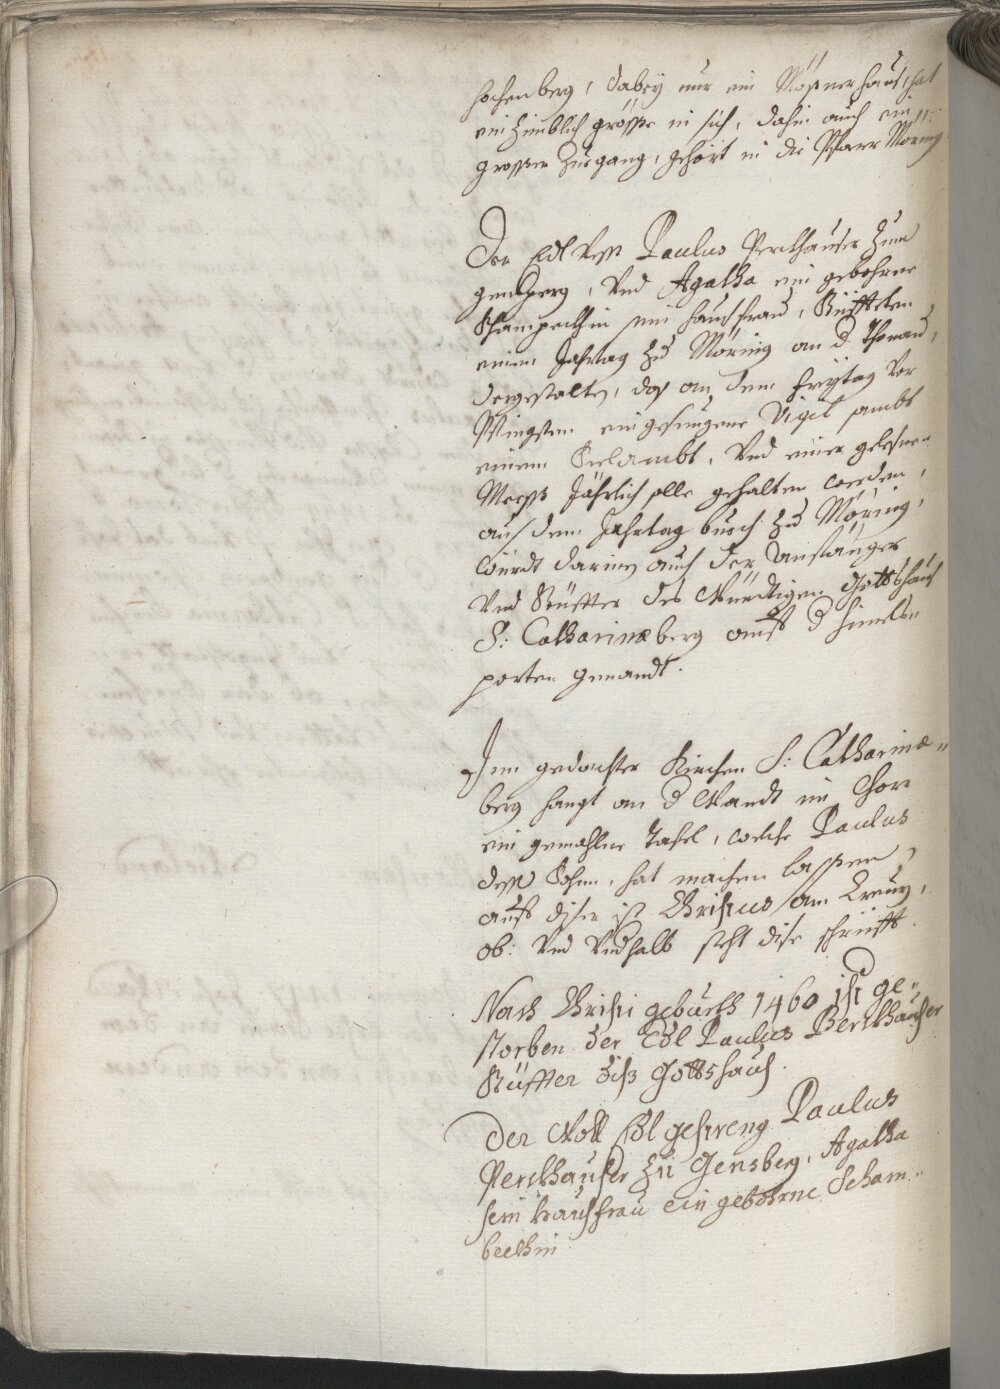 hochenberg, dabey nur ein Mößnerhauß, hat
ein zimblich grösse in sich, dahin auch ein
grosser Zuegang, gehört in die Pfarr Möring
Der Edl Vest Paulus Perckhauser zum
gensperg, Vnd Agatha ein gebohrne
Schampeckhin sein haußfrau, Stüffteten
einen Jahrtag zu Möring an d Thonau,
dergestalten, das an dem Freytag Vor
Pfingsten ein gesungene Vigil sambt
einem Seelambt, Vnd einer gelesnen
Meeß Jährlich solle gehalten werden,
auß dem Jahrtag buech zu Möring,
würdt darinen auch der Anfänger
Vnd Stüffter des Würdigen Gottshauß
S: Catharinæberg auff d himels
porten genandt.
Inn gedachter Kirchen S: Catharinæ
berg hangt an d Wandt im Chore
ein gemahlne Tafel, welche Paulus
dess Sohn, hat machen lassen,
auff diser ist Christus am Creuz,
ob: Vnd Vndhalb steht dise schrüfft.
Nach Christi gebuerth 1460 ist ge-
storben der Edl Paulus Berckhauser
Stüffter diß Gottshauß.
Der Woll Edl gestreng Paulus
Perckhauser zu Gensberg, Agatha
sein haußfrau ein gebohrne Scham-
beckhin